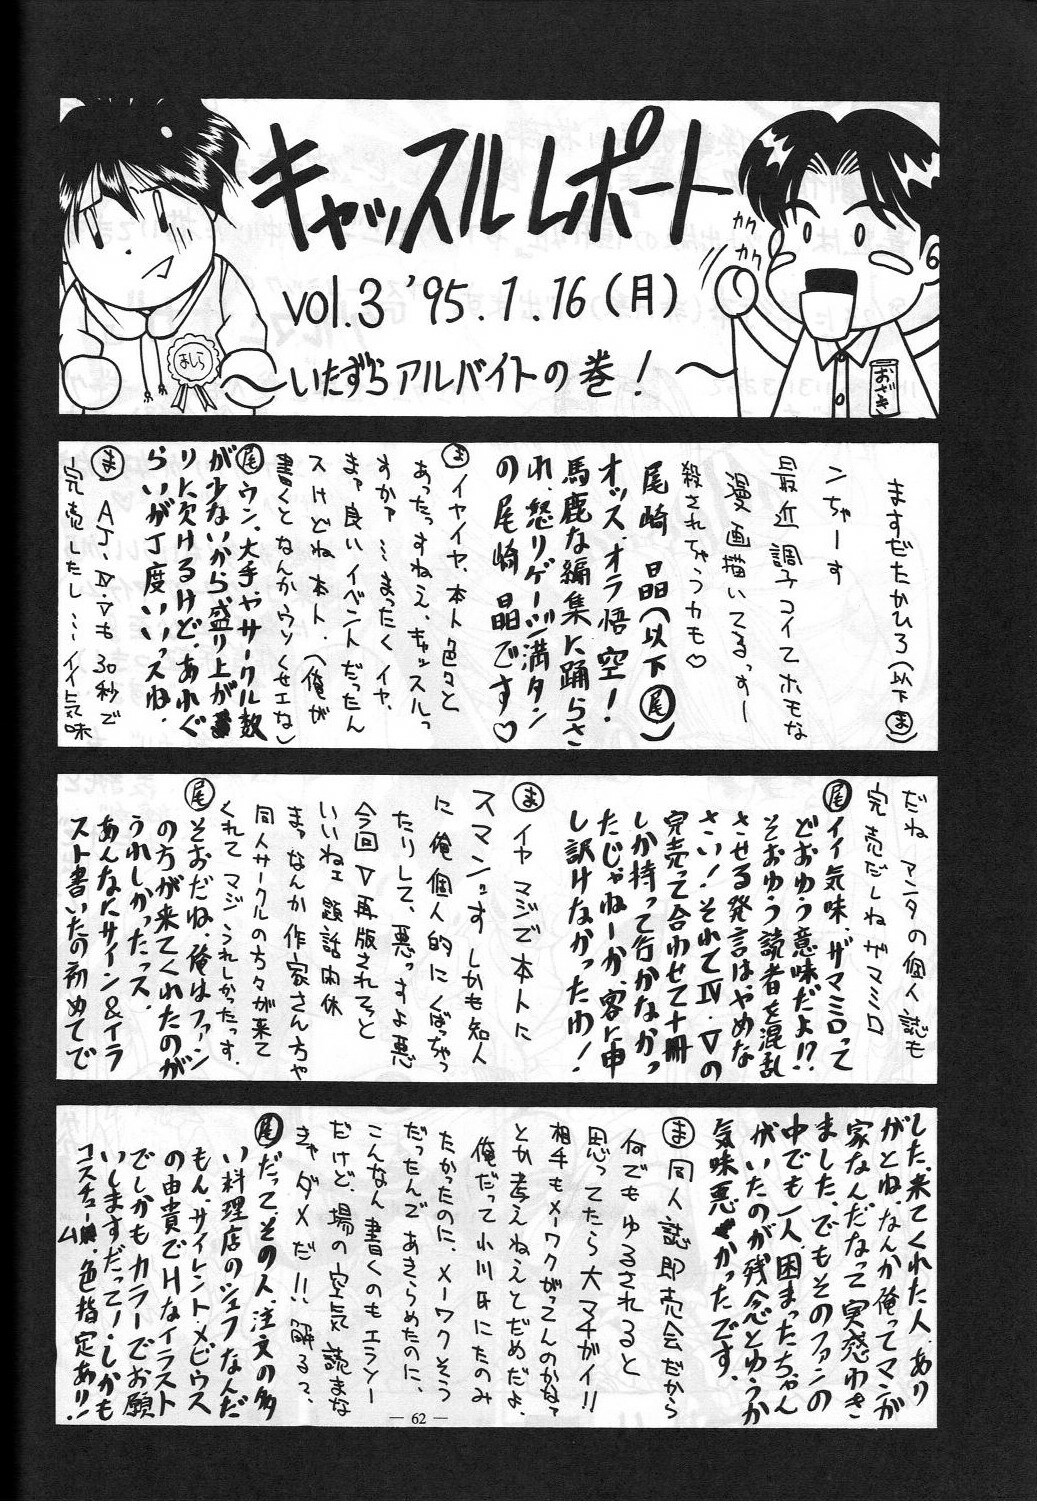 キャッスルレポート
vol.3 '95.1.16(月)
〜いたずらアルバイトの巻!〜
カクカク
ましら
おざき
ますだたかひろ(以下ま)
ンちゃーす
最近調子コイてホモな
漫画描いてるっすー
殺されちゃうカモ♡
尾崎 晶(以下尾)
オッス、オラ悟空!
馬鹿な編集に踊らさ
れ、怒りゲージ満タン
の尾崎晶です♡
まイヤイヤ、本ト色々と
あったっすねえ、キャッスルっ
すか?…まったくイヤ、
まァ良いイベントだったん
スけどね本ト、(俺が
書くとなんかウソくせエな)
尾ウン。大手やサークル数
が少ないから、盛り上が
りに欠けるけど、あれぐ
らいが丁度いいっスね。
ま AJ・Ⅳ・Ⅴも30秒で
完売したし…イイ気味
だね アンタの個人誌も
完売だしねザマミロ
尾イイ気味、ザマミロって
どおゆう意味だよ!?
そおゆう読者を混乱
させる発言はやめな
さい!それでⅣ・Ⅴの
完売って合わせて十冊
しか持って行かなかっ
たじゃねーか、客に申
し訳けなかったわ!
ま イヤ マジで本トに
スマンっす しかも知人
に俺個人的にくばっちゃっ
たりして、悪っすよ悪
今回Ⅴ再版されてそと
いいねェ 題話閑休
まっなんか作家さん方や
同人サークルの方々が来て
くれてマジうれしかったっす。
尾そおだね、俺はファン
の方が来てくれたのが
うれしかったっス。
あんなにサイン&イラ
スト書いたの初めてで
した、来てくれた人、あり
がとね、なんか俺ってマンガ
家なんだなって実感わき
ました、でもそのファンの
中でも一人、困まったちゃん
がいたのが残念とゆうか
気味悪かったです。
ま同人誌即売会だから
何でもゆるされると
思ってたら大マチガイ!!
相手もメーワクがってんのかな?
とか考えねえとだめだよ。
俺だって小川氏にたのみ
たかったのに、メーワクそう
だったんであきらめたのに、
こんなん書くのもエラソー
だけど、場の空気読まな
きゃダメだ!!解る?
尾だって、その人、注文の多
い料理店のシェフなんだ
もん。サイレント・メビウス
の由貴でHなイラスト
でしかもカラーでお願
いしますだってー、しかも
コスチューム、色指定あり!
— 62 —